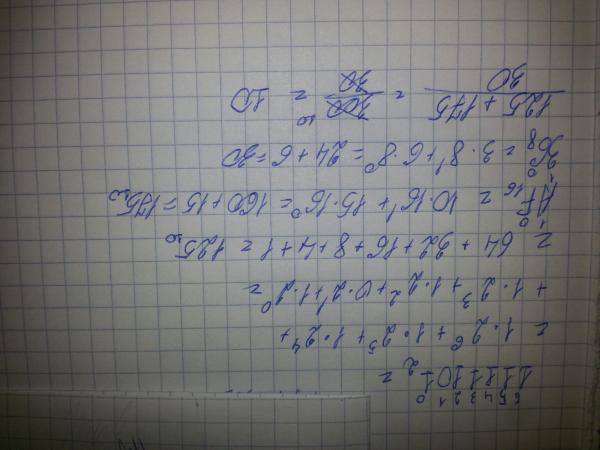 6 5 4 3 2 1 0
1111101₂ =
= 1·2⁶ + 1·2⁵ + 1·2⁴ +
+ 1·2³ + 1·2² + 0·2¹ + 1·2⁰ =
= 64 + 32 + 16 + 8 + 4 + 1 = 125₁₀
1 0
AF₁₆ = 10·16¹ + 15·16⁰ = 160 + 15 = 175₁₀
1 0
36₈ = 3·8¹ + 6·8⁰ = 24 + 6 = 30
125 + 175 / 30 = 300 / 30 = 10
10